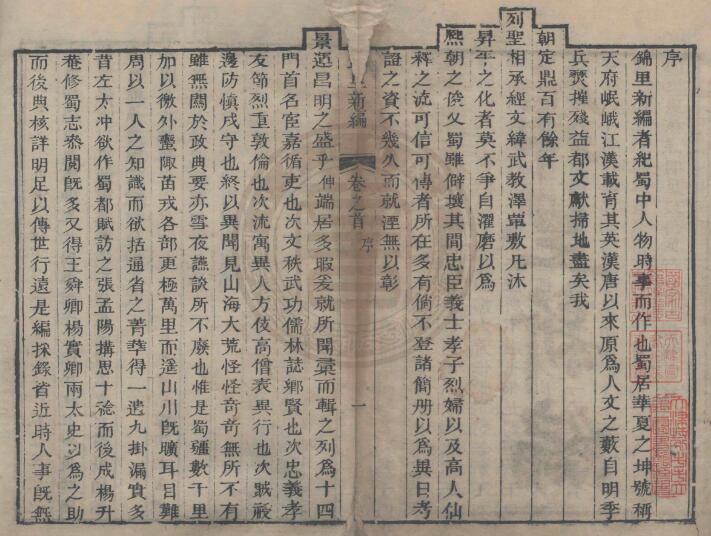 序
錦里新編者紀蜀中人物時事而作也蜀居華夏之坤號稱
天府岷峨江漢載育其英漢唐以來原爲人文之藪自明季
兵燹摧殘益都文獻掃地盡矣我
朝定鼎百有餘年
列聖相承經文緯武教澤覃敷凡沐
昇平之化者莫不爭自濯磨以爲
熙朝之俊乂蜀雖僻壤其間忠臣義士孝子烈婦以及高人仙
釋之流可信可傳者所在多有倘不登諸簡册以爲異日考
證之資不幾久而就湮無以彰
新編
卷之首
序
一
景運昌明之盛乎仲端居多暇爰就所聞彙而輯之列爲十四
門首名宦嘉循吏也次文秩武功儒林誌鄉賢也次忠義孝
友節烈重敦倫也次流寓異人方伎高僧表異行也次賊祲
邊防慎戎守也終以異聞見山海大荒怪怪奇奇無所不有
雖無關於政典要亦雪夜讌談所不廢也惟是蜀疆數千里
加以徼外蠻陬苗戎各部更極萬里而遥山川旣曠耳目難
周以一人之知識而欲括通省之菁華得一遺九掛漏實多
昔左太冲欲作蜀都賦訪之張孟陽搆思十稔而後成楊升
菴修蜀志泰閱旣多又得王舜卿楊實卿兩太史以爲之助
而後典核詳明足以傳世行遠是編採錄省近時人事旣無